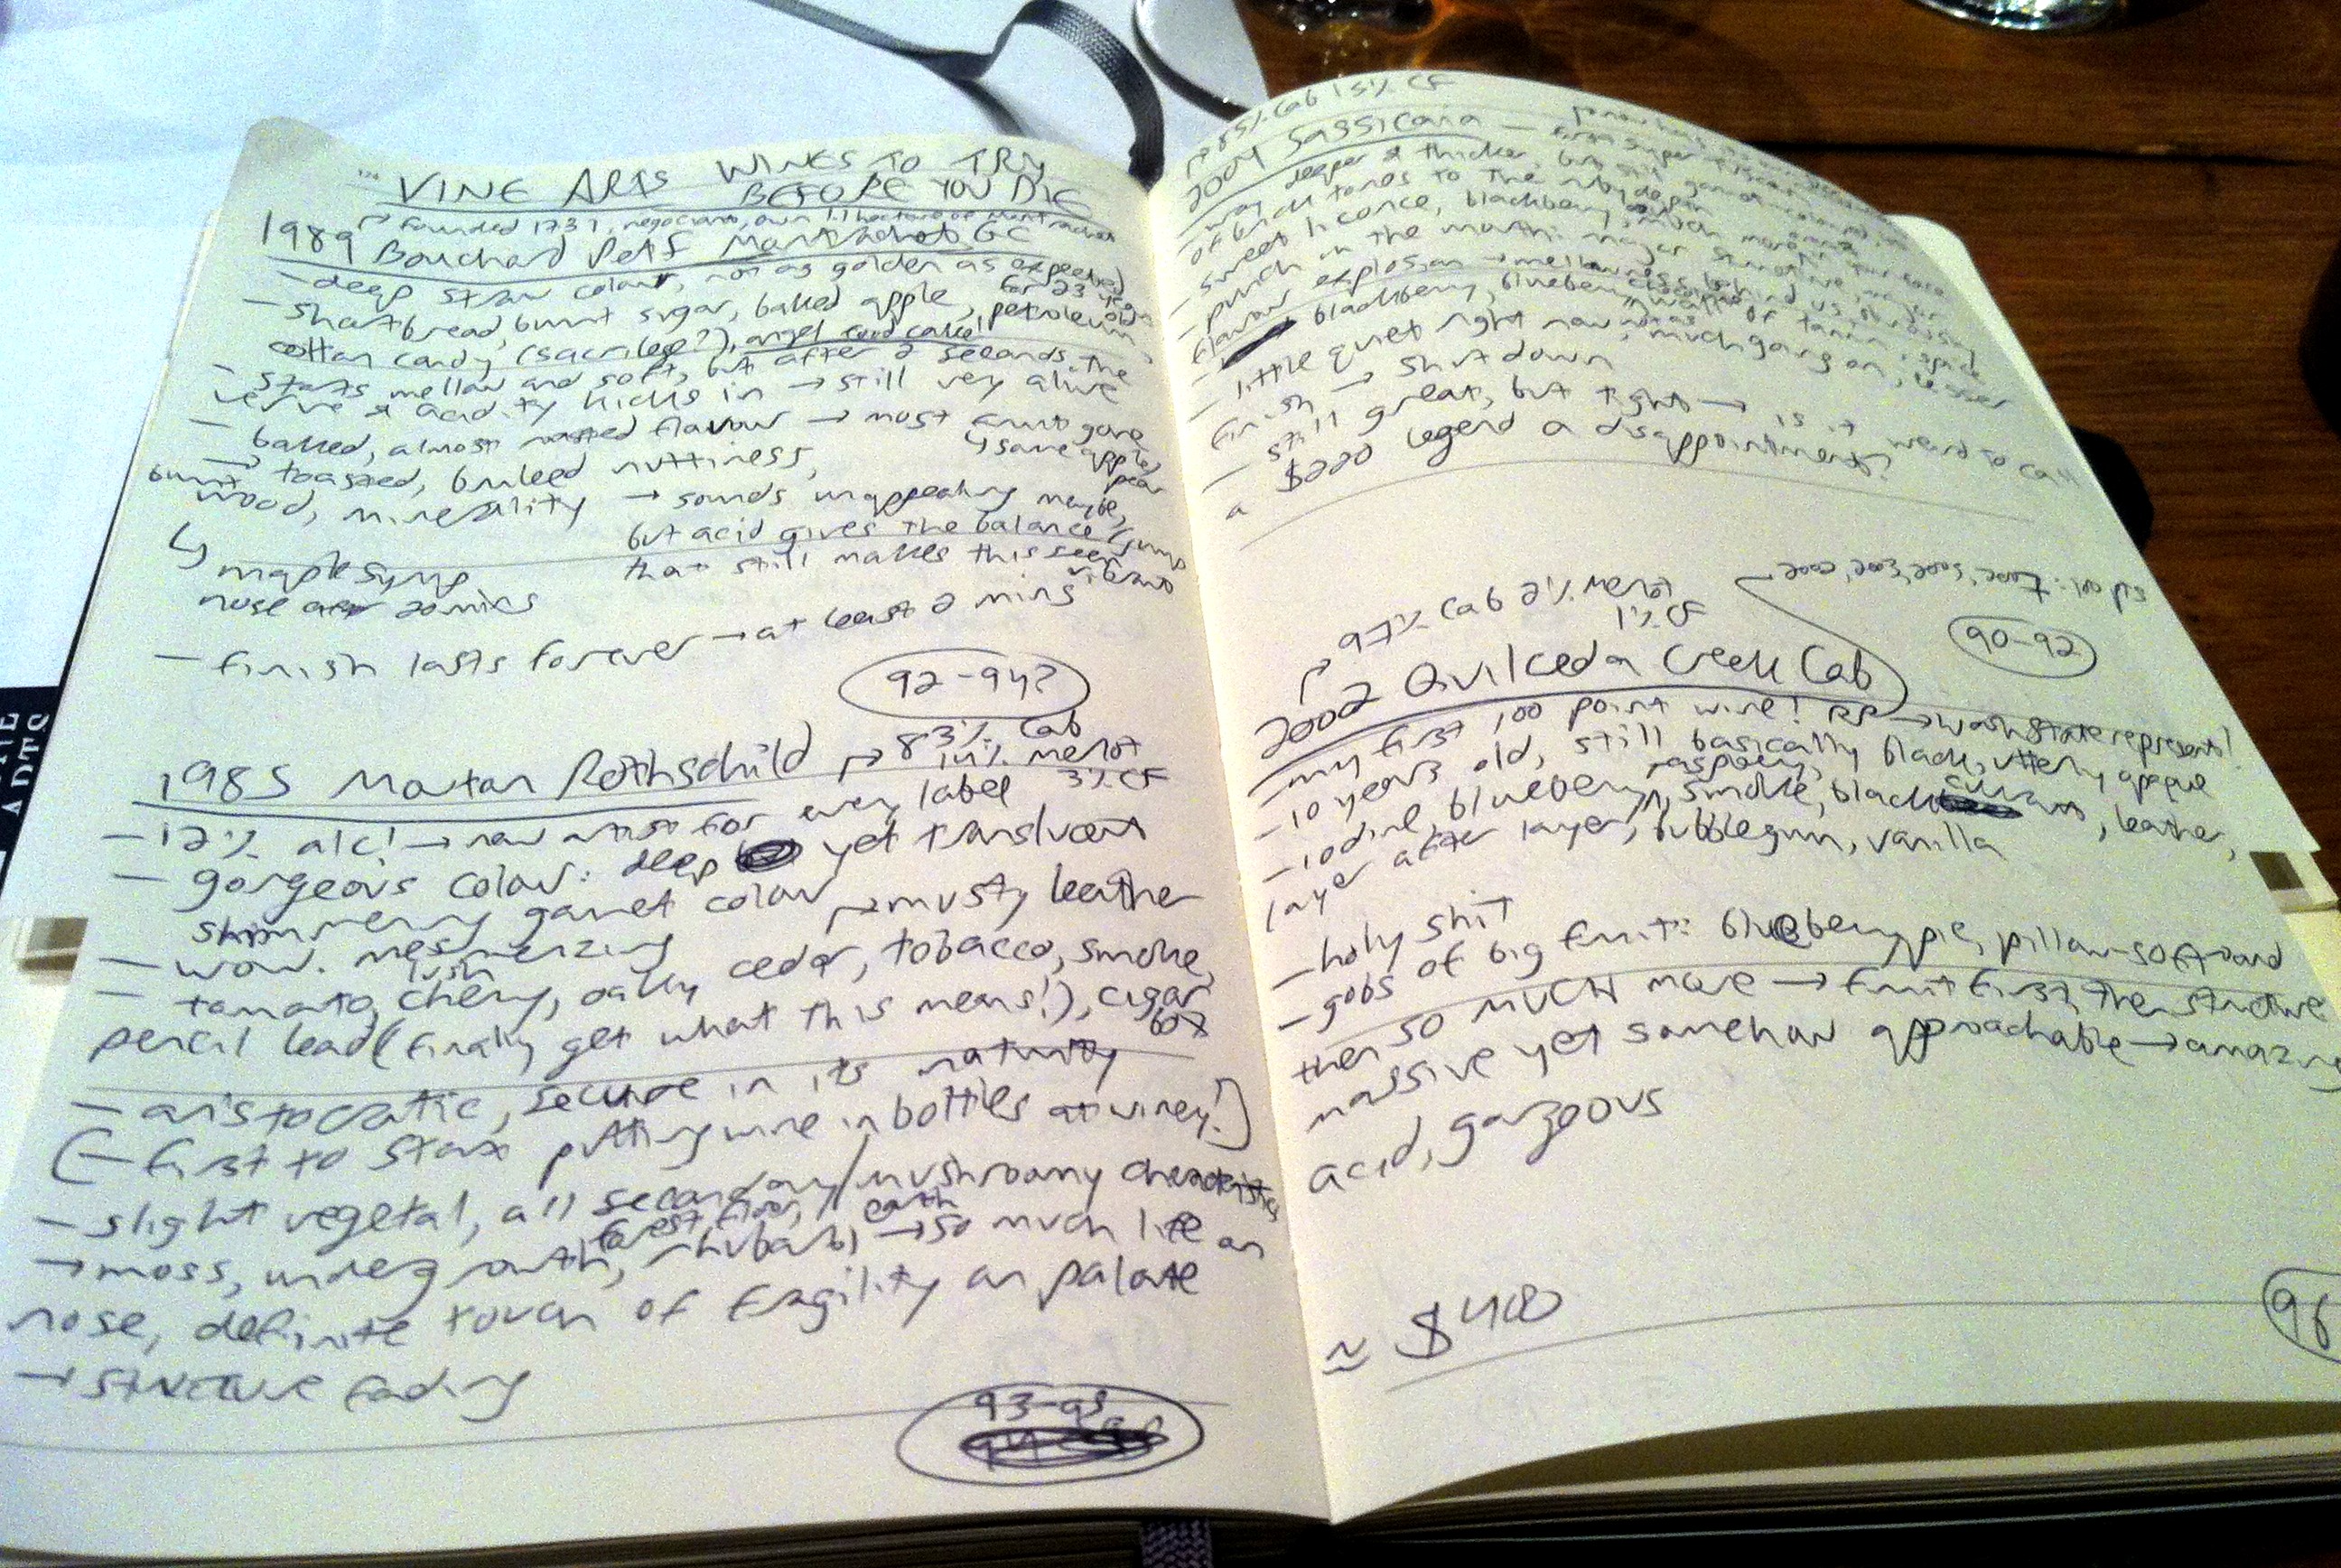 VINE ARTS WINES TO TRY
BEFORE YOU DIE
→ founded 1731, negociants, own 1.1 hectare of Montrachet
1989 Bouchard Montrachet GC
- deep straw colour, not as golden as expected
for 23 years old
- shortbread, burnt sugar, baked apple, petroleum,
cotton candy (sacrilege?), angel food cake!
- starts mellow and soft, but after 2 seconds the
verve & acidity kicks in → still very alive
- baked, almost roasted flavour → most fruit gone
↳ some apple, pear
→ toasted, bruleed nuttiness,
burnt wood, minerality → sounds unappealing maybe,
but acid gives the balance
that still makes this seem vibrant
↳ maple syrup
nose after 20 mins
- finish lasts forever → at least 2 mins
92-94?
1985 Mouton Rothschild → 83% Cab
14% merlot
3% CF
- 12% alc! → new artist for every label
- gorgeous colour: deep yet translucent
shimmering garnet colour → musty leather
- wow. mesmerizing
lush
- tomato, cherry, oaky cedar, tobacco, smoke,
pencil lead (finally get what this means!), cigar
box
- aristocratic, secure in its maturity
(- first to start putting wine in bottles at winery!)
- slight vegetal, all secondary/mushroomy characteristics
forest floor, earth
→ moss, undergrowth, rhubarb, → so much life on
nose, definite touch of fragility on palate
→ structure fading
93-95
→ 85% Cab 15% CF
2004 Sassicaia — first super
- way deeper & thicker, but still
of brick tones to the ruby
- sweet licorice, blackberry, much more
- punch in the mouth: major structure, major
flavour explosion → mellowness behind us
- blackberry, blueberry, wall of tannin, spice
- little quiet right now, much going on, lesser
finish → shut down
- still great, but tight → is it weird to call
a $220 legend a disappointment?
90-92
→ 97% Cab 2% Merlot
1% CF
2002 Quilceda Creek Cab
- my first 100 point wine! RP → Wash State represent!
- 10 years old, still basically black, utterly opaque
raspberry,
- iodine, blueberry, smoke, black currant, leather,
layer after layer, bubblegum, vanilla
- holy shit
- gobs of big fruit: blueberry pie, pillow-soft and
then so MUCH more → fruit first, then structure
massive yet somehow approachable → amazing
acid, gorgeous
≈ $400
96